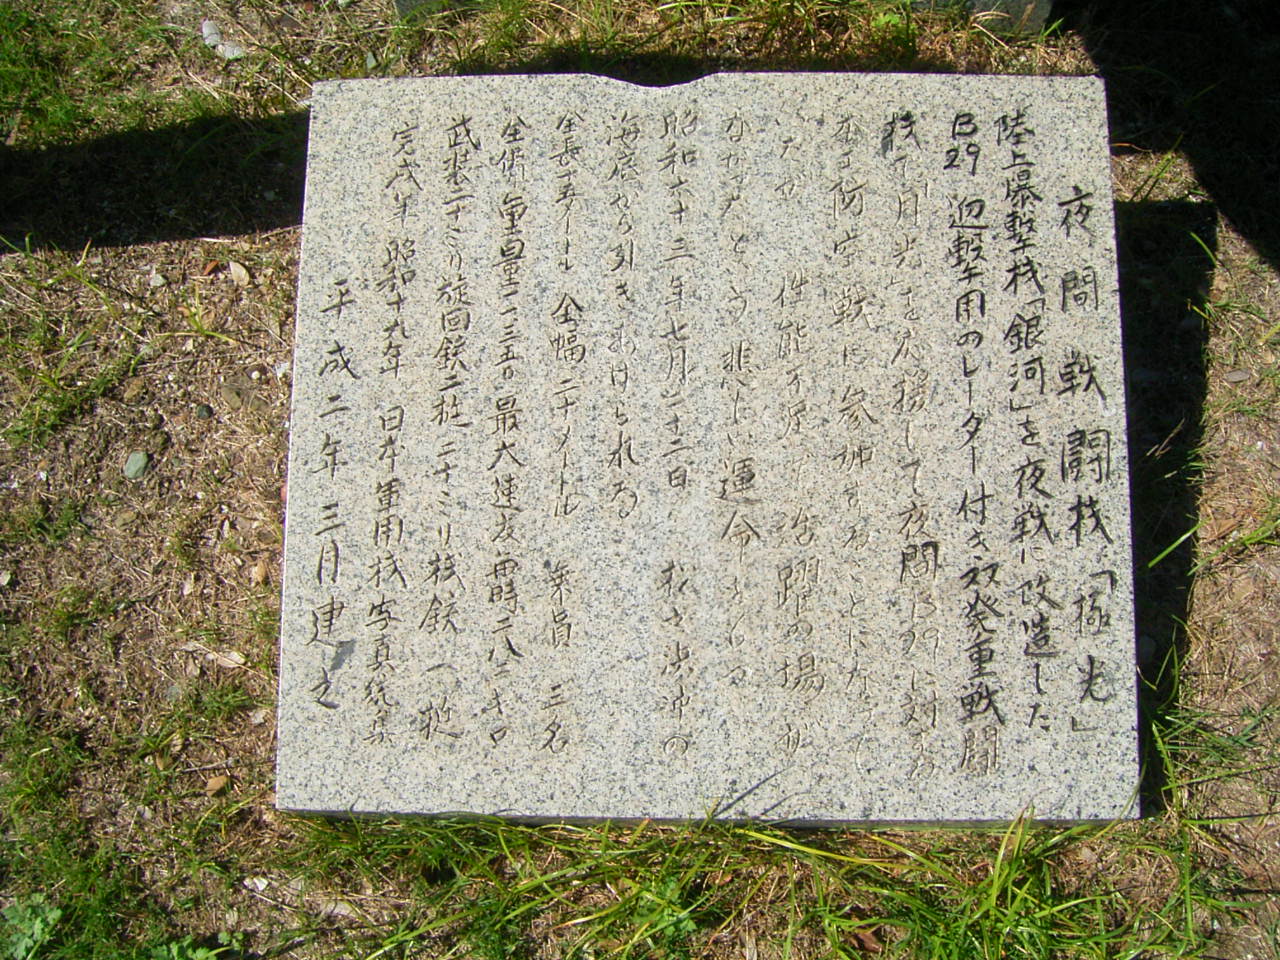 夜間戦闘機「極光」
陸上爆撃機「銀河」を夜戦に改造した
B29迎撃用のレーダー付き双発重戦闘
機で月光を応援して夜間B29に対する
本土防空戦に参加することになって
いたが 性能不足で活躍の場が
なかったという悲しい運命をもつ
昭和六十三年七月二十二日 松さ沖の
海底から引きあげられる
全長十五メートル 全幅二十メートル 乗員 三名
全備重量一三五〇 最大速度 時 五二二キロ
武装 二十ミリ旋回銃二挺 二十ミリ機銃一挺
完成年 昭和十九年 日本軍用機写真総集
平成二年三月建之